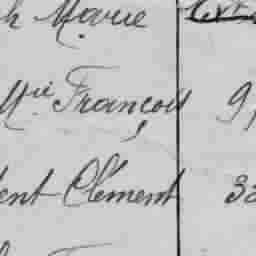 h Marie
Mie François 9
ent Clément 3